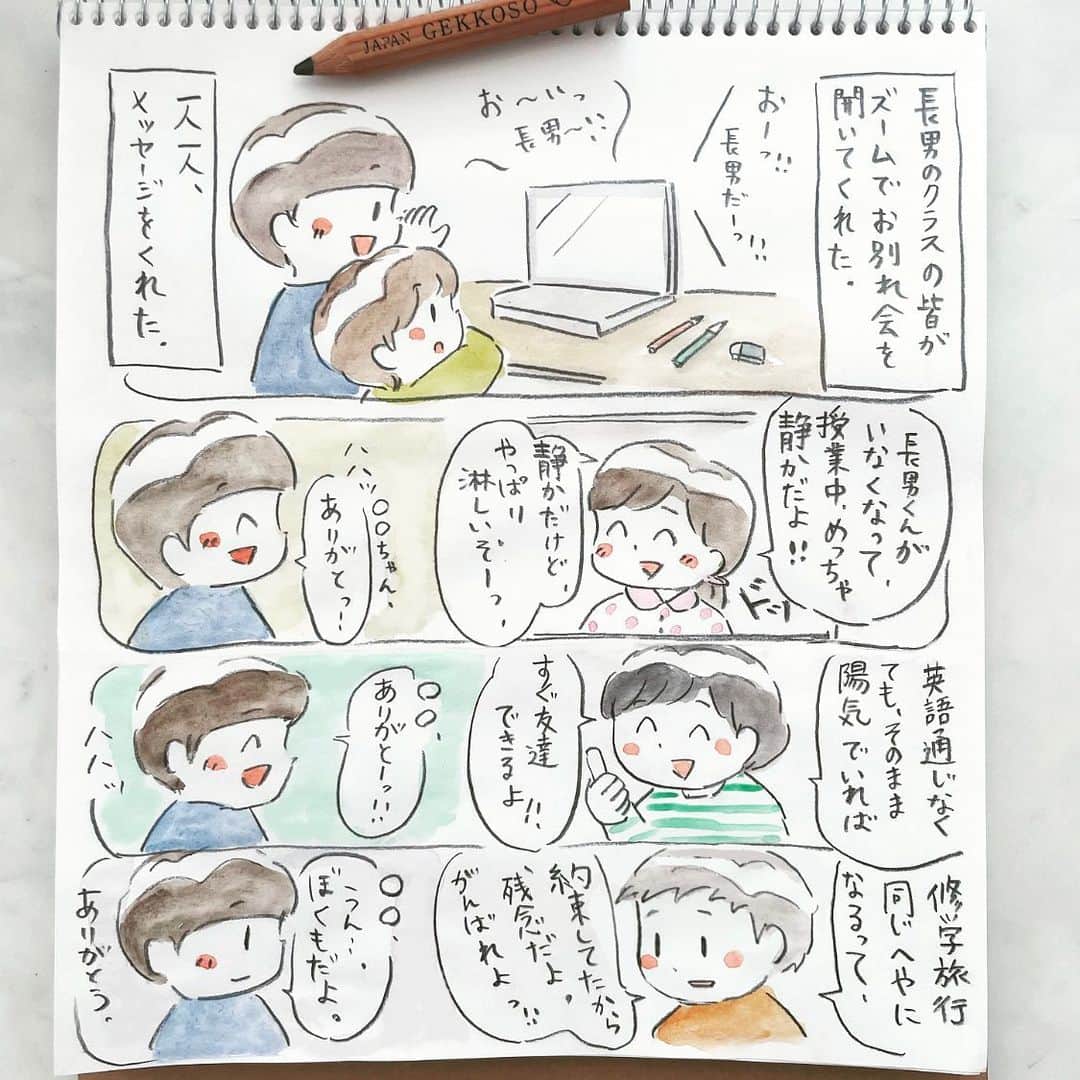 JAPAN GEKKOSO
長男のクラスの皆が
ズームでお別れ会を
開いてくれた。
おーっ!!
長男だーっ!!
お〜いっ
長男〜!!
一人一人、
メッセージをくれた。
長男くんが
いなくなって、
授業中、めっちゃ
静かだよ!!
ドッ
静かだけど、
やっぱり
淋しいぞーっ。
ハハッ
○○ちゃん、
ありがとっ!
英語通じなく
ても、そのまま
陽気でいれば
すぐ友達
できるよ!!
○○、
ありがとーっ!!
ハハッ
修学旅行
同じへやに
なるって、
約束してたから
残念だよ。
がんばれよっ!!
○○、
うん、
ぼくもだよ。
ありがとう。